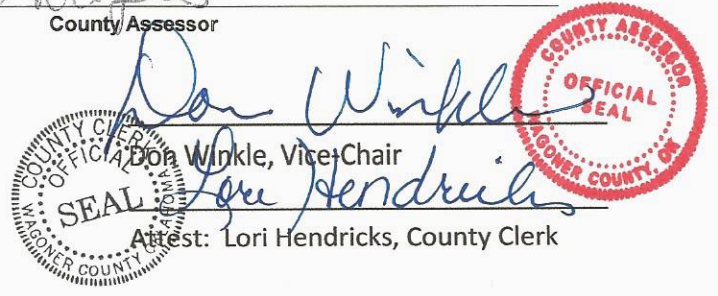 County Assessor
Don Winkle
COUNTY ASSESSOR
OFFICIAL
SEAL
WAGONER COUNTY, OK
Don Winkle, Vice-Chair
COUNTY CLERK
OFFICIAL
SEAL
WAGONER COUNTY OKLAHOMA
Lori Hendricks
Attest: Lori Hendricks, County Clerk